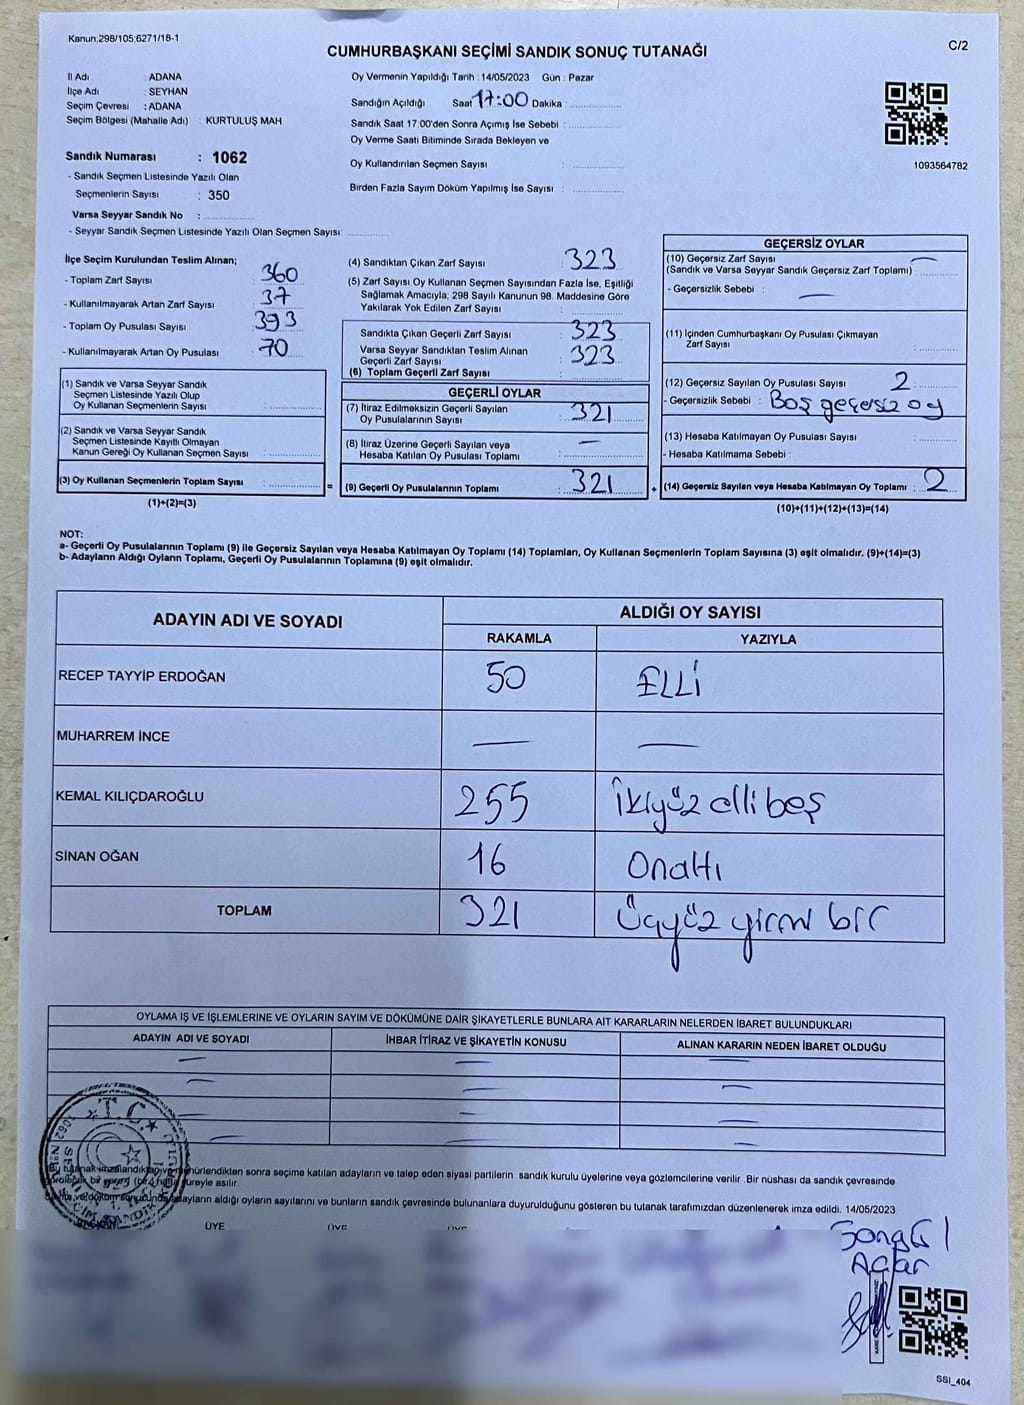 Kanun;298/105;6271/18-1
C/2
CUMHURBAŞKANI SEÇİMİ SANDIK SONUÇ TUTANAĞI
İl Adı : ADANA
İlçe Adı : SEYHAN
Seçim Çevresi : ADANA
Seçim Bölgesi (Mahalle Adı) : KURTULUŞ MAH.
Sandık Numarası : 1062
- Sandık Seçmen Listesinde Yazılı Olan
Seçmenlerin Sayısı : 350
Varsa Seyyar Sandık No :
- Seyyar Sandık Seçmen Listesinde Yazılı Olan Seçmen Sayısı:
Oy Vermenin Yapıldığı Tarih : 14/05/2023 Gün : Pazar
Sandığın Açıldığı Saat 17:00 Dakika :
Sandık Saat 17:00'den Sonra Açımış İse Sebebi :
Oy Verme Saati Bitiminde Sırada Bekleyen ve
Oy Kullandırılan Seçmen Sayısı :
Birden Fazla Sayım Döküm Yapılmış İse Sayısı :
1093564782
İlçe Seçim Kurulundan Teslim Alınan;
- Toplam Zarf Sayısı : 360
- Kullanılmayarak Artan Zarf Sayısı : 37
- Toplam Oy Pusulası Sayısı : 393
- Kullanılmayarak Artan Oy Pusulası : 70
(1) Sandık ve Varsa Seyyar Sandık
Seçmen Listesinde Yazılı Olup
Oy Kullanan Seçmenlerin Sayısı :
(2) Sandık ve Varsa Seyyar Sandık
Seçmen Listesinde Kayıtlı Olmayan
Kanun Gereği Oy Kullanan Seçmen Sayısı :
(3) Oy Kullanan Seçmenlerin Toplam Sayısı :
(1)+(2)=(3)
(4) Sandıktan Çıkan Zarf Sayısı : 323
(5) Zarf Sayısı Oy Kullanan Seçmen Sayısından Fazla İse, Eşitliği
Sağlamak Amacıyla, 298 Sayılı Kanunun 98. Maddesine Göre
Yakılarak Yok Edilen Zarf Sayısı :
Sandıkta Çıkan Geçerli Zarf Sayısı : 323
Varsa Seyyar Sandıktan Teslim Alınan
Geçerli Zarf Sayısı : 323
(6) Toplam Geçerli Zarf Sayısı :
GEÇERLİ OYLAR
(7) İtiraz Edilmeksizin Geçerli Sayılan
Oy Pusulalarının Sayısı : 321
(8) İtiraz Üzerine Geçerli Sayılan veya
Hesaba Katılan Oy Pusulası Toplamı : —
= (9) Geçerli Oy Pusulalarının Toplamı : 321 +
GEÇERSİZ OYLAR
(10) Geçersiz Zarf Sayısı
(Sandık ve Varsa Seyyar Sandık Geçersiz Zarf Toplamı) : —
- Geçersizlik Sebebi : —
(11) İçinden Cumhurbaşkanı Oy Pusulası Çıkmayan
Zarf Sayısı :
(12) Geçersiz Sayılan Oy Pusulası Sayısı : 2
- Geçersizlik Sebebi : Boş geçersiz oy
(13) Hesaba Katılmayan Oy Pusulası Sayısı :
- Hesaba Katılmama Sebebi :
(14) Geçersiz Sayılan veya Hesaba Katılmayan Oy Toplamı : 2
(10)+(11)+(12)+(13)=(14)
NOT:
a- Geçerli Oy Pusulalarının Toplamı (9) ile Geçersiz Sayılan veya Hesaba Katılmayan Oy Toplamı (14) Toplamları, Oy Kullanan Seçmenlerin Toplam Sayısına (3) eşit olmalıdır. (9)+(14)=(3)
b- Adayların Aldığı Oyların Toplamı, Geçerli Oy Pusulalarının Toplamına (9) eşit olmalıdır.
ADAYIN ADI VE SOYADI
ALDIĞI OY SAYISI
RAKAMLA YAZIYLA
RECEP TAYYİP ERDOĞAN 50 ELLİ
MUHARREM İNCE — —
KEMAL KILIÇDAROĞLU 255 İkiyüz elli beş
SİNAN OĞAN 16 Onaltı
TOPLAM 321 Üçyüz yirmi bir
OYLAMA İŞ VE İŞLEMLERİNE VE OYLARIN SAYIM VE DÖKÜMÜNE DAİR ŞİKAYETLERLE BUNLARA AİT KARARLARIN NELERDEN İBARET BULUNDUKLARI
ADAYIN ADI VE SOYADI İHBAR İTİRAZ VE ŞİKAYETİN KONUSU ALINAN KARARIN NEDEN İBARET OLDUĞU
— — —
— — —
— — —
— — —
T.C.
Bu tutanak imzalandıktan ve mühürlendikten sonra seçime katılan adayların ve talep eden siyasi partilerin sandık kurulu üyelerine veya gözlemcilerine verilir. Bir nüshası da sandık çevresinde
görülecek bir yere (bir) hafta süreyle asılır.
Sayım ve döküm sonucunda adayların aldığı oyların sayılarını ve bunların sandık çevresinde bulunanlara duyurulduğunu gösteren bu tutanak tarafımızdan düzenlenerek imza edildi. 14/05/2023
BAŞKAN ÜYE ÜYE ÜYE
Songül
Açlar
SSI_404